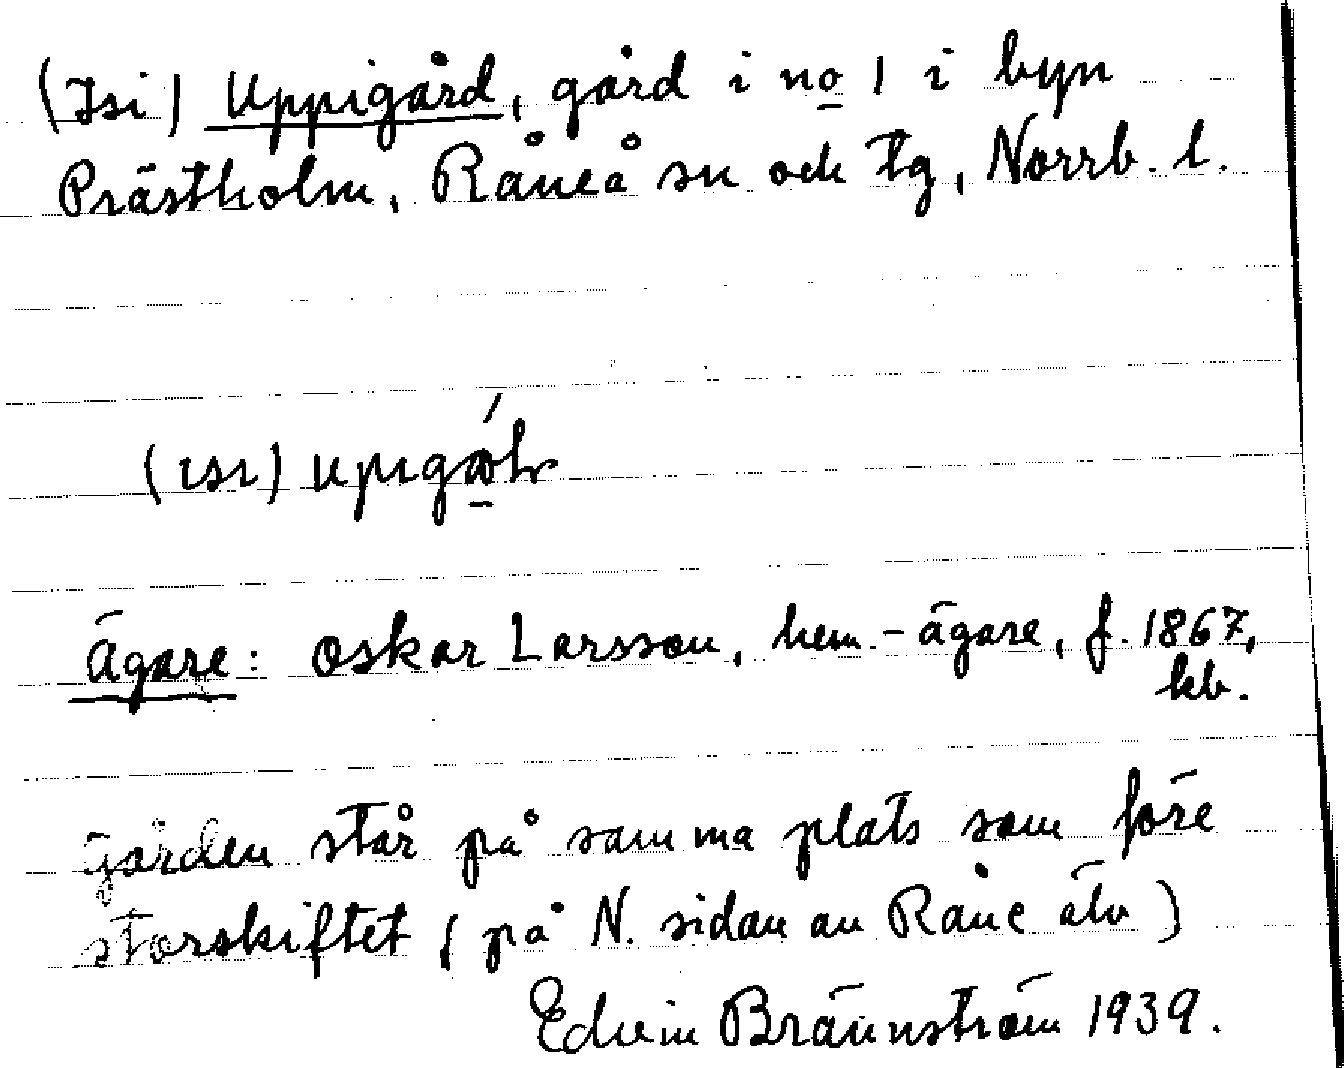 (Isi) Uppigård, gård i no 1 i byn
Prästholm, Råneå sn och tg, Norrb. l.
(ısı) upıgǻḷr
Ägare: Oskar Larsson, hem.-ägare, f. 1867,
kb.
Gården står på samma plats som före
storskiftet (på N. sidan av Råne älv)
Edvin Brännström 1939.